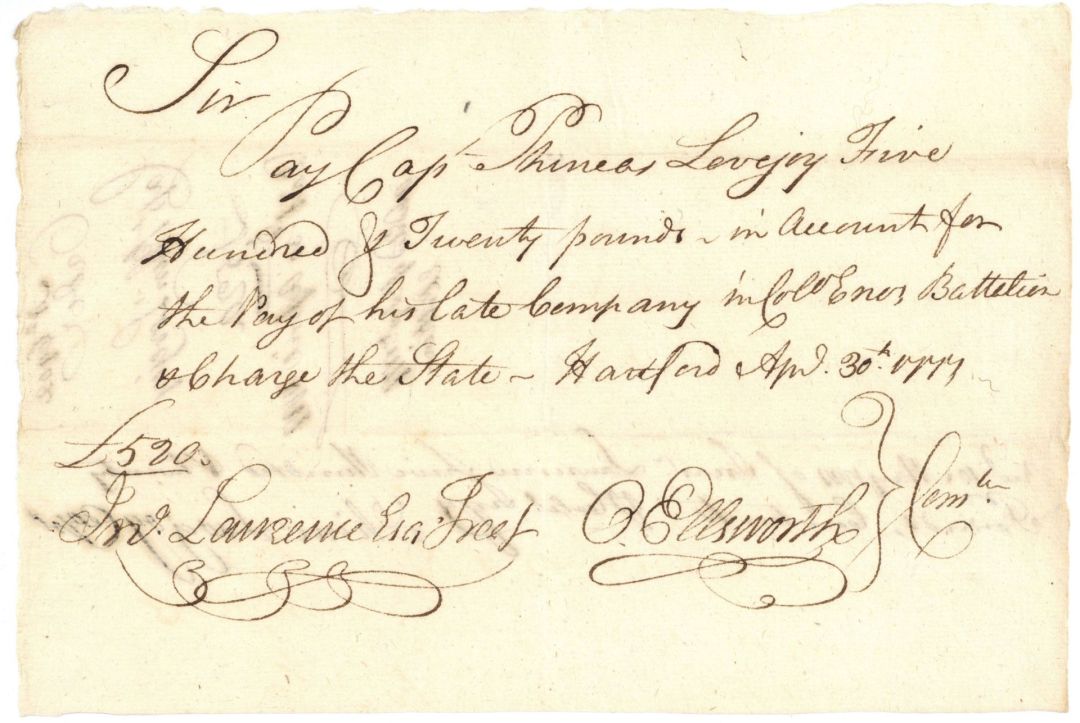 Sir
Pay Cap Phineas Lovejoy Five
Hundred & Twenty pounds - in Account for
the Pay of his late Company in Colo Enos Battelion
& Charge the State - Hartford Apl. 30th 1777
£520.
Jno. Lawrence Esqr Treasr O. Ellsworth } Comtee